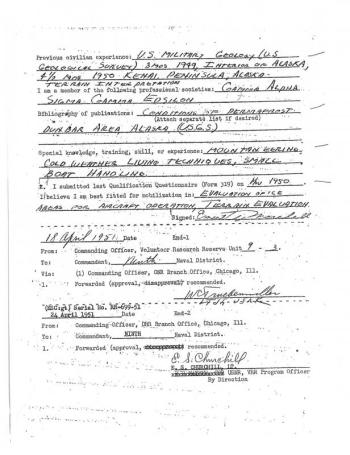 Previous civilian experience: U.S. MILITARY GEOLOGY (U.S
GEOLOGICAL SURVEY) 3 MOS 1949, INTERIOR OF ALASKA,
4½ MOS 1950 KENAI PENINSULA, ALASKA-
TERRAIN INTERPRETATION
I am a member of the following professional societies: GAMMA ALPHA
SIGMA GAMMA EPSILON
Bibliography of publications: CONDITIONS OF PERMAFROST
(Attach separate list if desired)
DUNBAR AREA ALASKA (U.S.G.S)
Special knowledge, training, skill, or experience: MOUNTAINEERING,
COLD WEATHER LIVING TECHNIQUES, SMALL
BOAT HANDLING.
I submitted last Qualification Questionnaire (Form 319) on 1950
I believe I am best fitted for mobilization in: EVALUATION OF ICE
AREAS FOR AIRCRAFT OPERATION, TERRAIN EVALUATION
Signed:
18 April 1951 Date End-1
From: Commanding Officer, Volunteer Research Reserve Unit 9 - 3.
To: Commandant, Ninth Naval District.
Via: (1) Commanding Officer, ONR Branch Office, Chicago, Ill.
1. Forwarded (approval, disapproval) recommended.
24 April 1951 Date End-2
From: Commanding Officer, ONR Branch Office, Chicago, Ill.
To: Commandant, NINTH Naval District.
1. Forwarded (approval, disapproval) recommended.
E. S. Churchill
E. S. CHURCHILL,
USNR, VRR Program Officer
By Direction